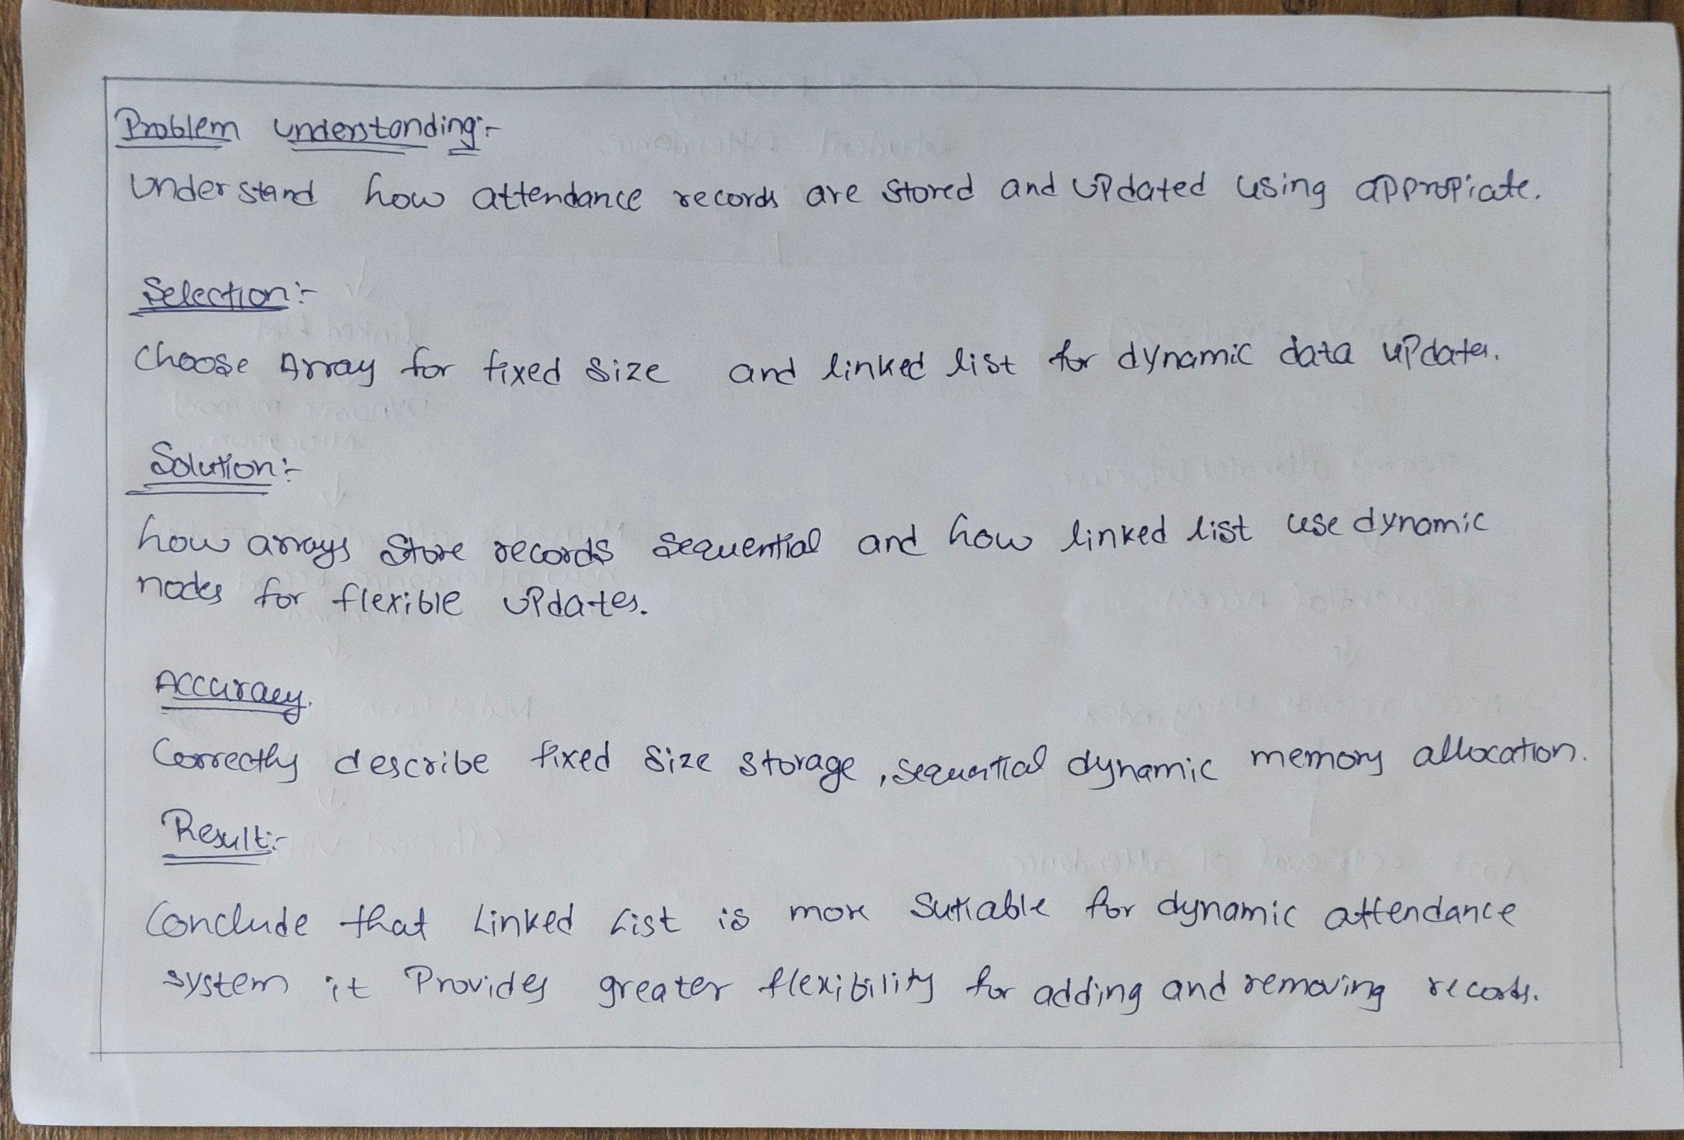 Problem understanding:-
Understand how attendance records are stored and updated using appropiate.
Selection:-
Choose Array for fixed size and linked list for dynamic data updates.
Solution:-
how arrays store records sequential and how linked list use dynamic
nodes for flexible updates.
Accuracy.
Correctly describe fixed size storage, sequential dynamic memory allocation.
Result:-
Conclude that Linked List is more sutiable for dynamic attendance
system it Provides greater flexibility for adding and removing records.